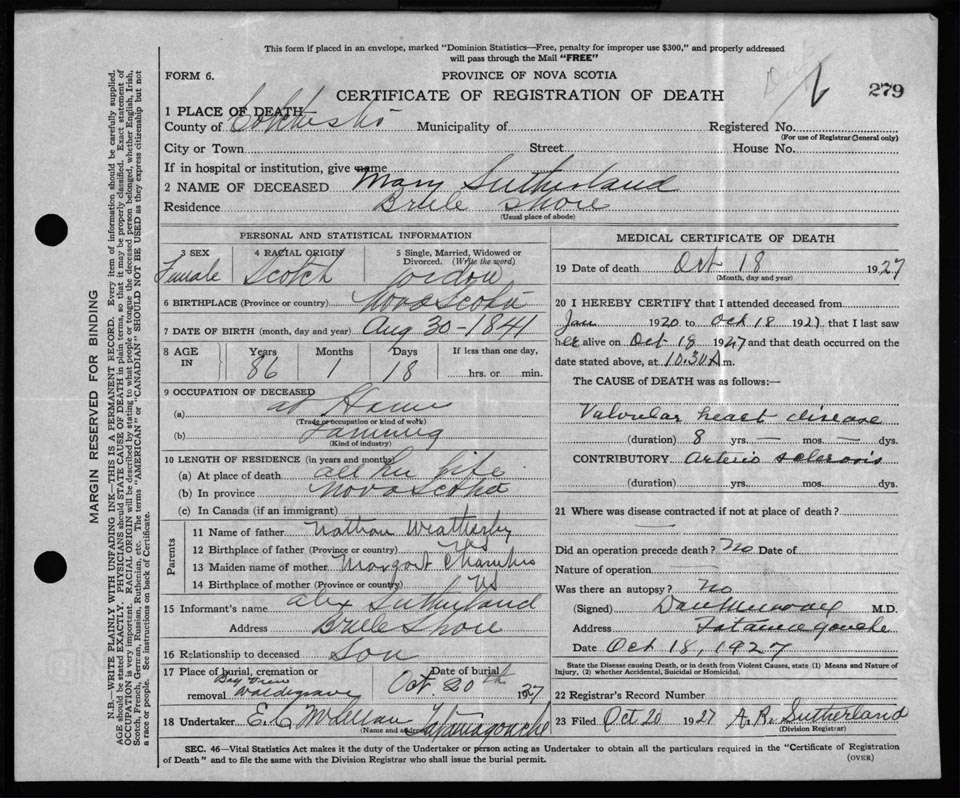 This form if placed in an envelope, marked "Dominion Statistics—Free, penalty for improper use $300," and properly addressed
will pass through the Mail "FREE"
FORM 6.
PROVINCE OF NOVA SCOTIA
CERTIFICATE OF REGISTRATION OF DEATH
279
1 PLACE OF DEATH
County of Municipality of Registered No.
(For use of Registrar General only)
City or Town Street House No.
If in hospital or institution, give name
2 NAME OF DECEASED Mary Sutherland
Residence Brule Shore
(Usual place of abode)
PERSONAL AND STATISTICAL INFORMATION
3 SEX 4 RACIAL ORIGIN 5 Single, Married, Widowed or
Divorced. (Write the word)
Female Scotch
6 BIRTHPLACE (Province or country) Nova Scotia
7 DATE OF BIRTH (month, day and year) Aug 30-1841
8 AGE IN Years Months Days If less than one day,
86 1 18 hrs. or min.
9 OCCUPATION OF DECEASED
(a) at Home
(Trade or occupation or kind of work)
(b) Farming
(Kind of industry)
10 LENGTH OF RESIDENCE (in years and months)
(a) At place of death all her life
(b) In province Nova Scotia
(c) In Canada (if an immigrant)
Parents
11 Name of father Nathan Weatherby
12 Birthplace of father (Province or country) NS
13 Maiden name of mother Margart Chambers
14 Birthplace of mother (Province or country) NS
15 Informant's name Alex Sutherland
Address Brule Shore
16 Relationship to deceased Son
17 Place of burial, cremation or Date of burial
removal Bay View
Waldegrave Oct 20th 1927
18 Undertaker E.C McLellan Tatamagouche
(Name and address)
MEDICAL CERTIFICATE OF DEATH
19 Date of death Oct 18 1927
(Month, day and year)
20 I HEREBY CERTIFY that I attended deceased from
Jan 1920 to Oct 18 1927 that I last saw
her alive on Oct 18 1927 and that death occurred on the
date stated above, at 10.30 A m.
The CAUSE of DEATH was as follows:—
Valvular heart disease
(duration) 8 yrs. — mos. — dys.
CONTRIBUTORY Arterio sclerosis
(duration) yrs. mos. dys.
21 Where was disease contracted if not at place of death?
Did an operation precede death? No Date of
Nature of operation
Was there an autopsy? No
(Signed) Dan Murray M.D.
Address Tatamagouche
Date Oct 18, 1927
State the Disease causing Death, or in death from Violent Causes, state (1) Means and Nature of
Injury, (2) whether Accidental, Suicidal or Homicidal.
22 Registrar's Record Number
23 Filed Oct 20 1927 A. R. Sutherland
(Division Registrar)
SEC. 46—Vital Statistics Act makes it the duty of the Undertaker or person acting as Undertaker to obtain all the particulars required in the "Certificate of Registration
of Death" and to file the same with the Division Registrar who shall issue the burial permit.
(OVER)
MARGIN RESERVED FOR BINDING
N.B.—WRITE PLAINLY WITH UNFADING INK—THIS IS A PERMANENT RECORD. Every item of information should be carefully supplied.
AGE should be stated EXACTLY. PHYSICIANS should STATE CAUSE OF DEATH in plain terms, so that it may be properly classified. Exact statement of
OCCUPATION is very important. RACIAL ORIGIN will be described by stating to what people or tongue the deceased person belonged, whether English, Irish,
Scotch, French, German, Russian, Ruthenian, etc. The terms "AMERICAN" or "CANADIAN" SHOULD NOT BE USED as they express citizenship but not
a race or people. See instructions on back of Certificate.